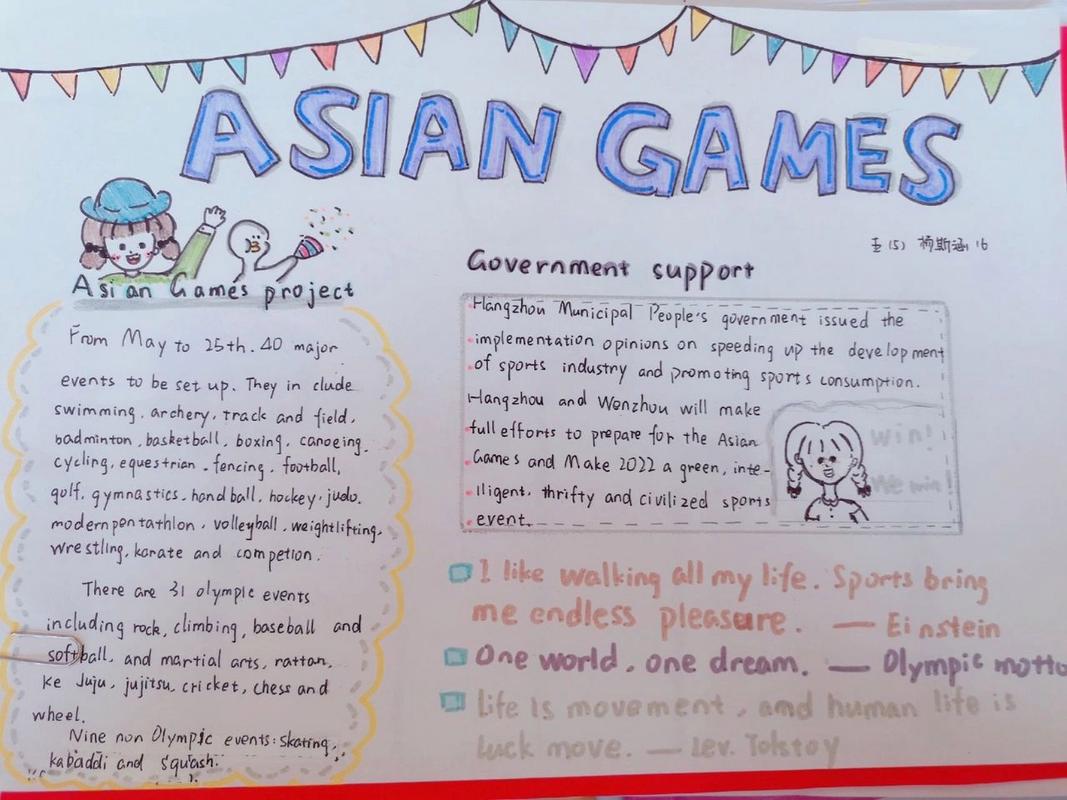 ASIAN GAMES
五(5) 杨斯涵 16
Asian Games project
From May to 25th. 40 major
events to be set up. They in clude
swimming. archery. track and field.
badminton. basketball. boxing. canoeing.
cycling, equestrian. fencing. football,
golf. gymnastics. hand ball. hockey. judo.
modern pentathlon. volleyball. weightlifting,
wrestling, karate and competion.
There are 31 olympic events
including rock, climbing, baseball and
softball, and martial arts, rattan,
ke Juju, jujitsu, cricket, chess and
wheel.
Nine non Olympic events: skating,
kabaddi and squash.
Government support
Hangzhou Municipal People's government issued the
implementation opinions on speeding up the development
of sports industry and promoting sports consumption.
Hangzhou and Wenzhou will make
full efforts to prepare for the Asian
Games and Make 2022 a green, inte-
lligent, thrifty and civilized sports
event.
win!
We win!
I like walking all my life. Sports bring
me endless pleasure. — Einstein
One world, one dream. — Olympic motto
Life is movement, and human life is
luck move. — Lev. Tolstoy